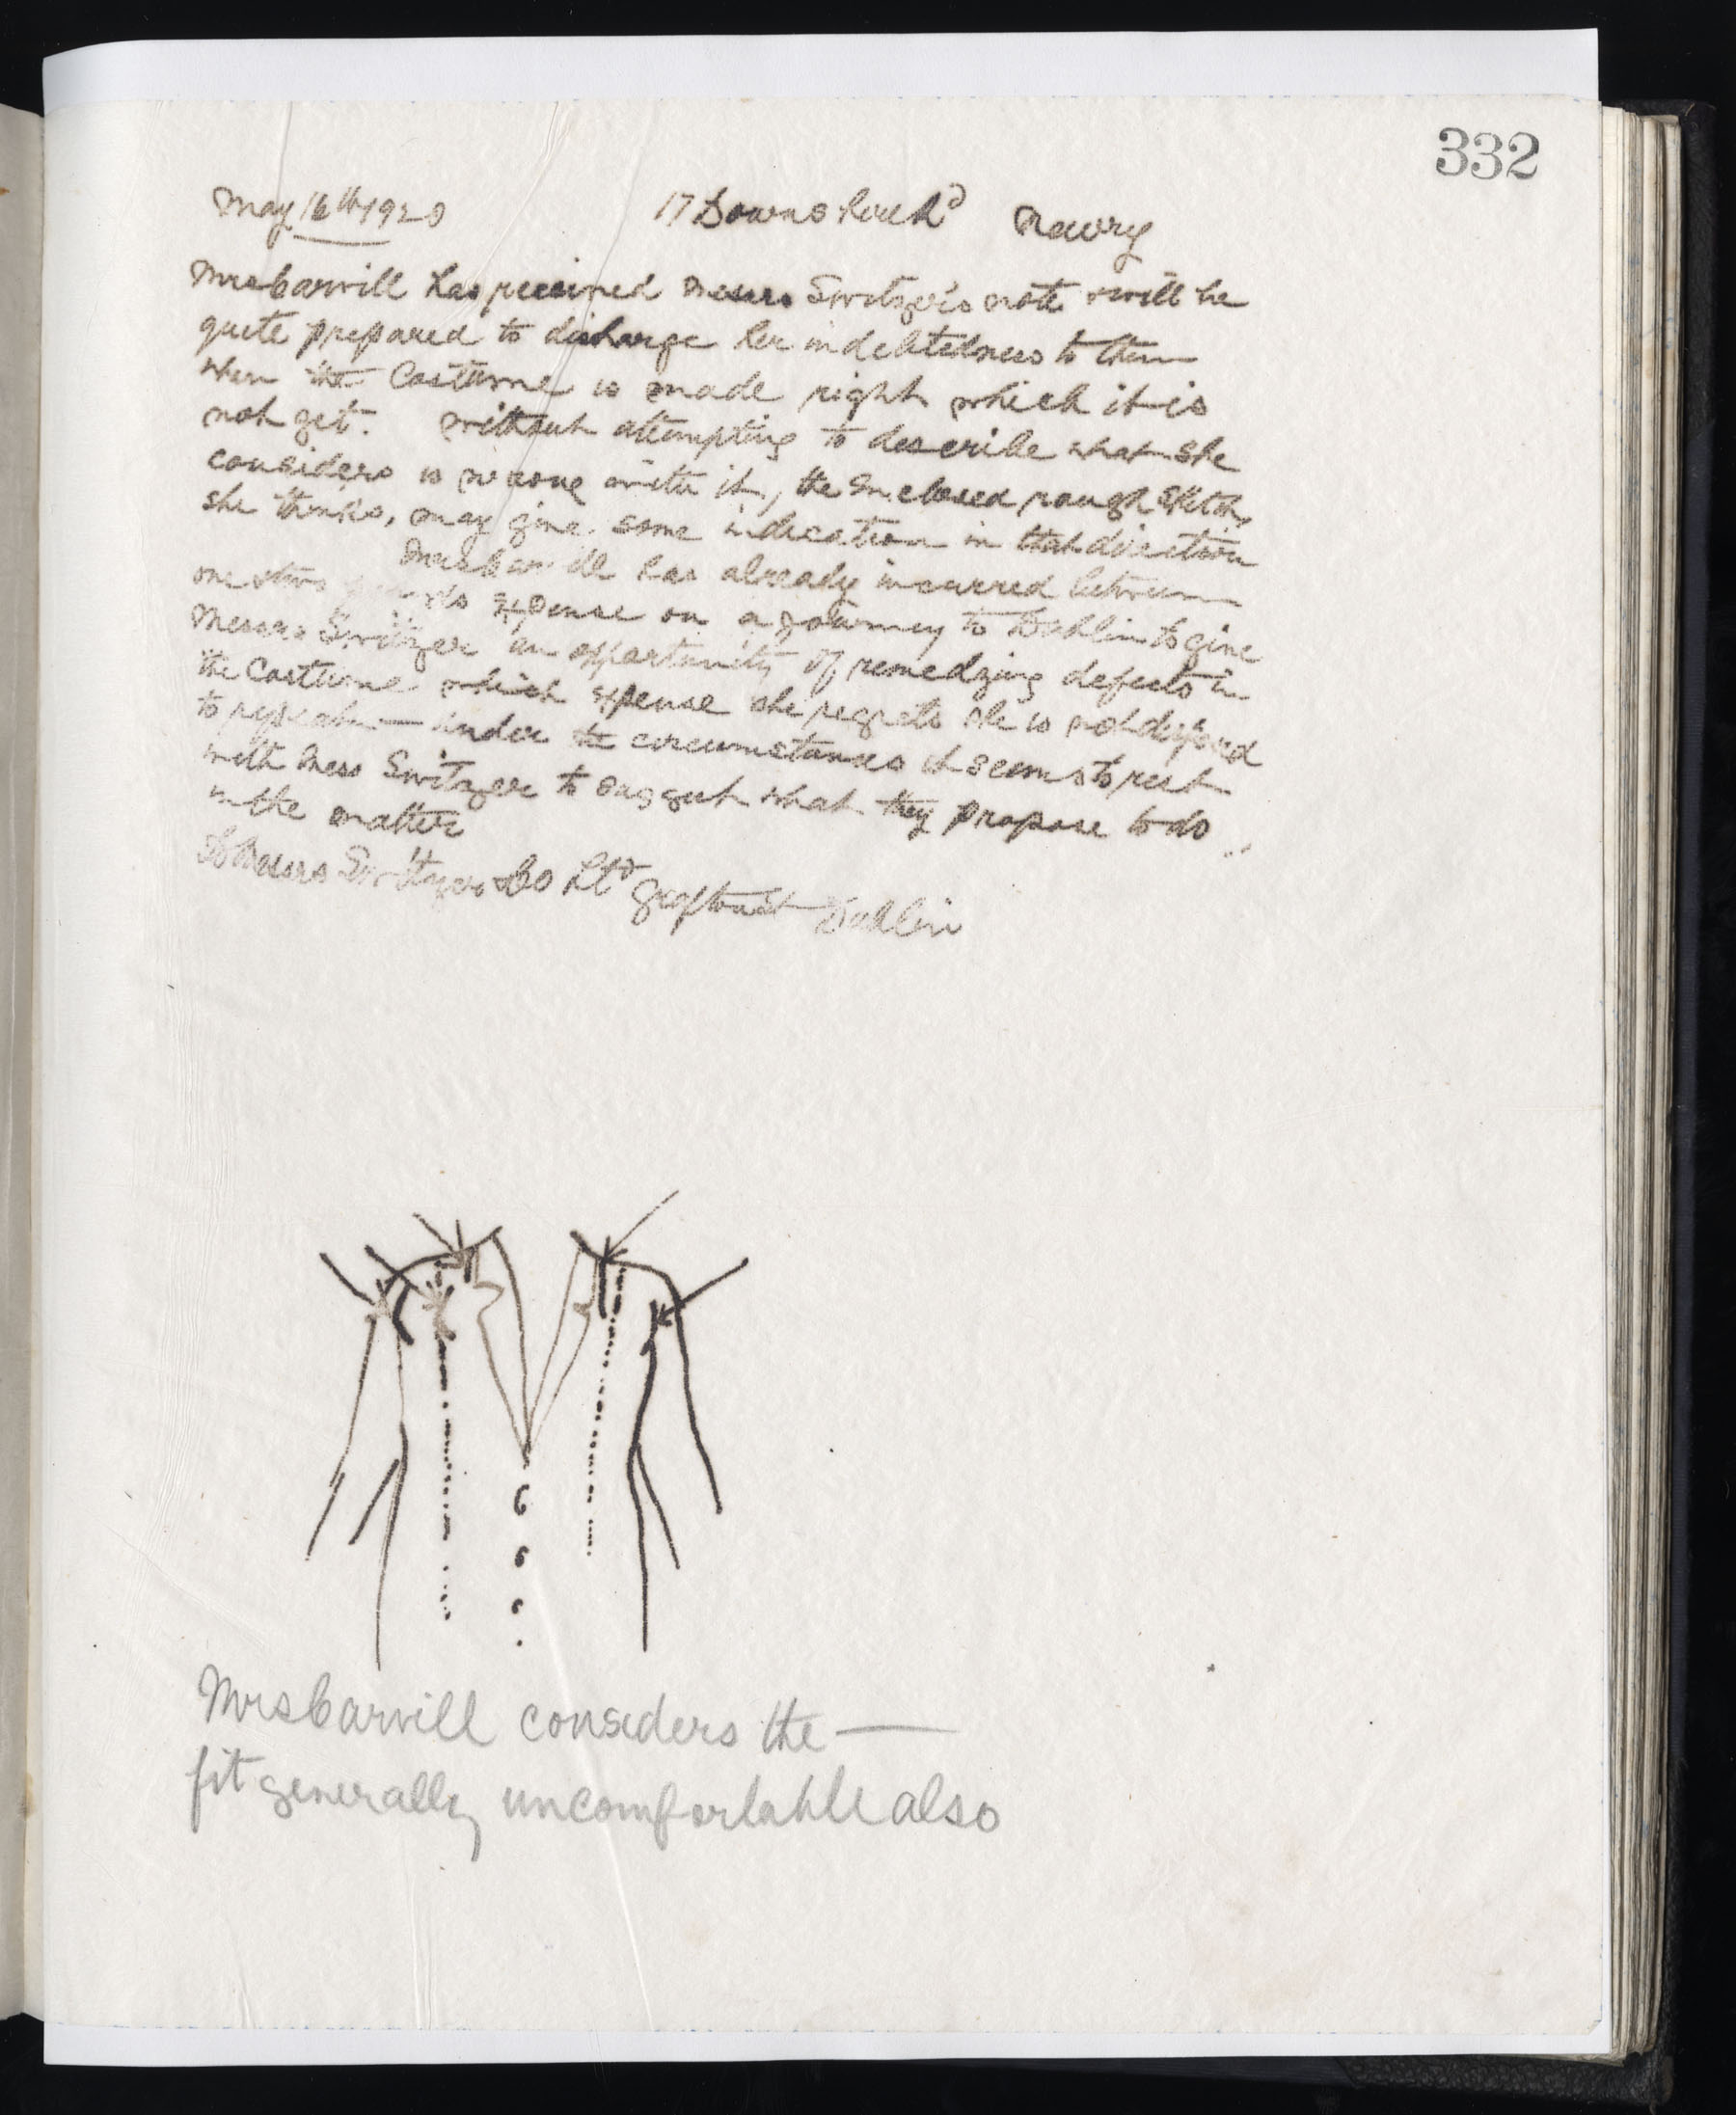 332
May 16th 1920 17 Downshire Rd Newry
Mrs Carvill has received Messrs Switzer's note & will be
quite prepared to discharge her indebtedness to them
when the Costume is made right which it is
not yet. Without attempting to describe what she
considers is wrong with it, the enclosed rough sketch,
she thinks, may give some indication in that direction
Mrs Carvill has already incurred between
one & two pounds expense on a journey to Dublin to give
Messrs Switzer an opportunity of remedying defects in
the Costume which expense she regrets she is not disposed
to repeat — under the circumstances it seems to rest
with Mess Switzer to suggest what they propose to do
in the matter
To Messrs Switzer & Co Ltd Grafton St Dublin
Mrs Carvill considers the —
fit generally uncomfortable also